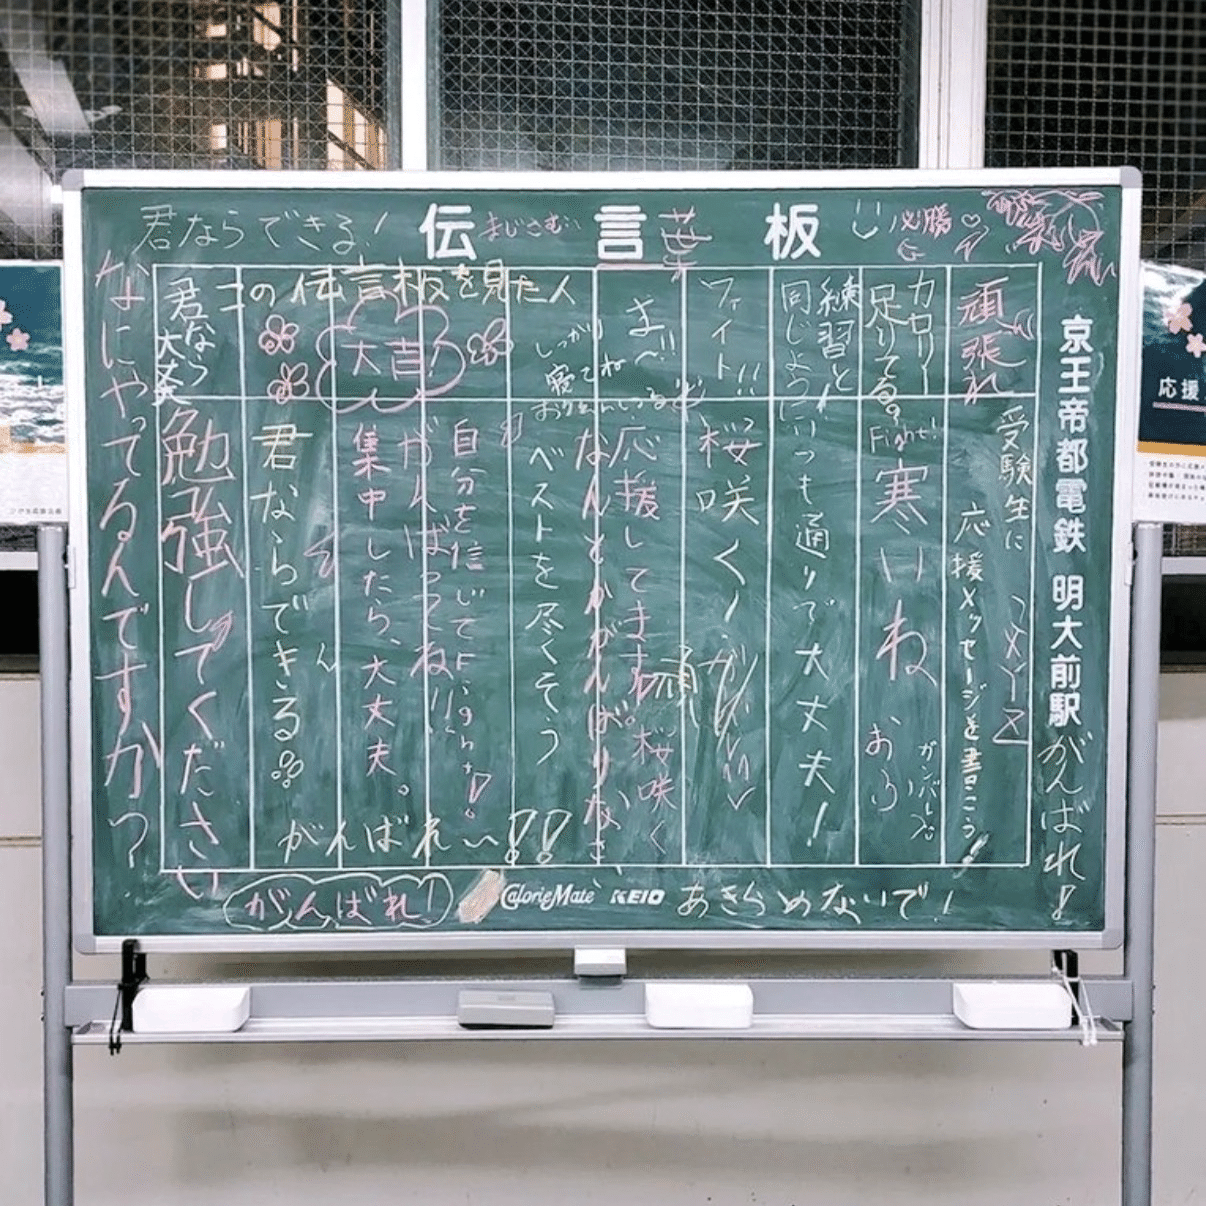 君ならできる!
伝言板
まじさむい
葉
必勝
京王帝都電鉄 明大前駅
がんばれ!
頑張れ
受験生に
応援メッセージを書こう!
カロリー
足りてる?
Fight!
寒いね
ガンバレ
練習と
同じように
いつも通りで大丈夫!
ファイト!!
桜咲く!
ま〜!!
応援してます。桜咲く
なんとかがんばりなさい
しっかり
寝てね
ベストを尽くそう
この伝言板を見た人
大吉!
自分を信じてFight!
がんばってね!!
集中したら、大丈夫。
君ならできる
がんばれ〜!!
君なら
大丈夫
勉強してください
なにやってるんですか?
がんばれ!
CalorieMate KEIO
あきらめないで!
応援